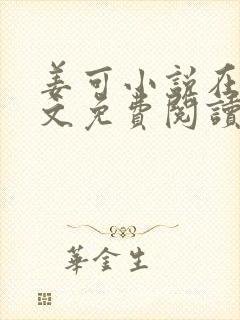 姜可小说在
文免費閱讀
華金生